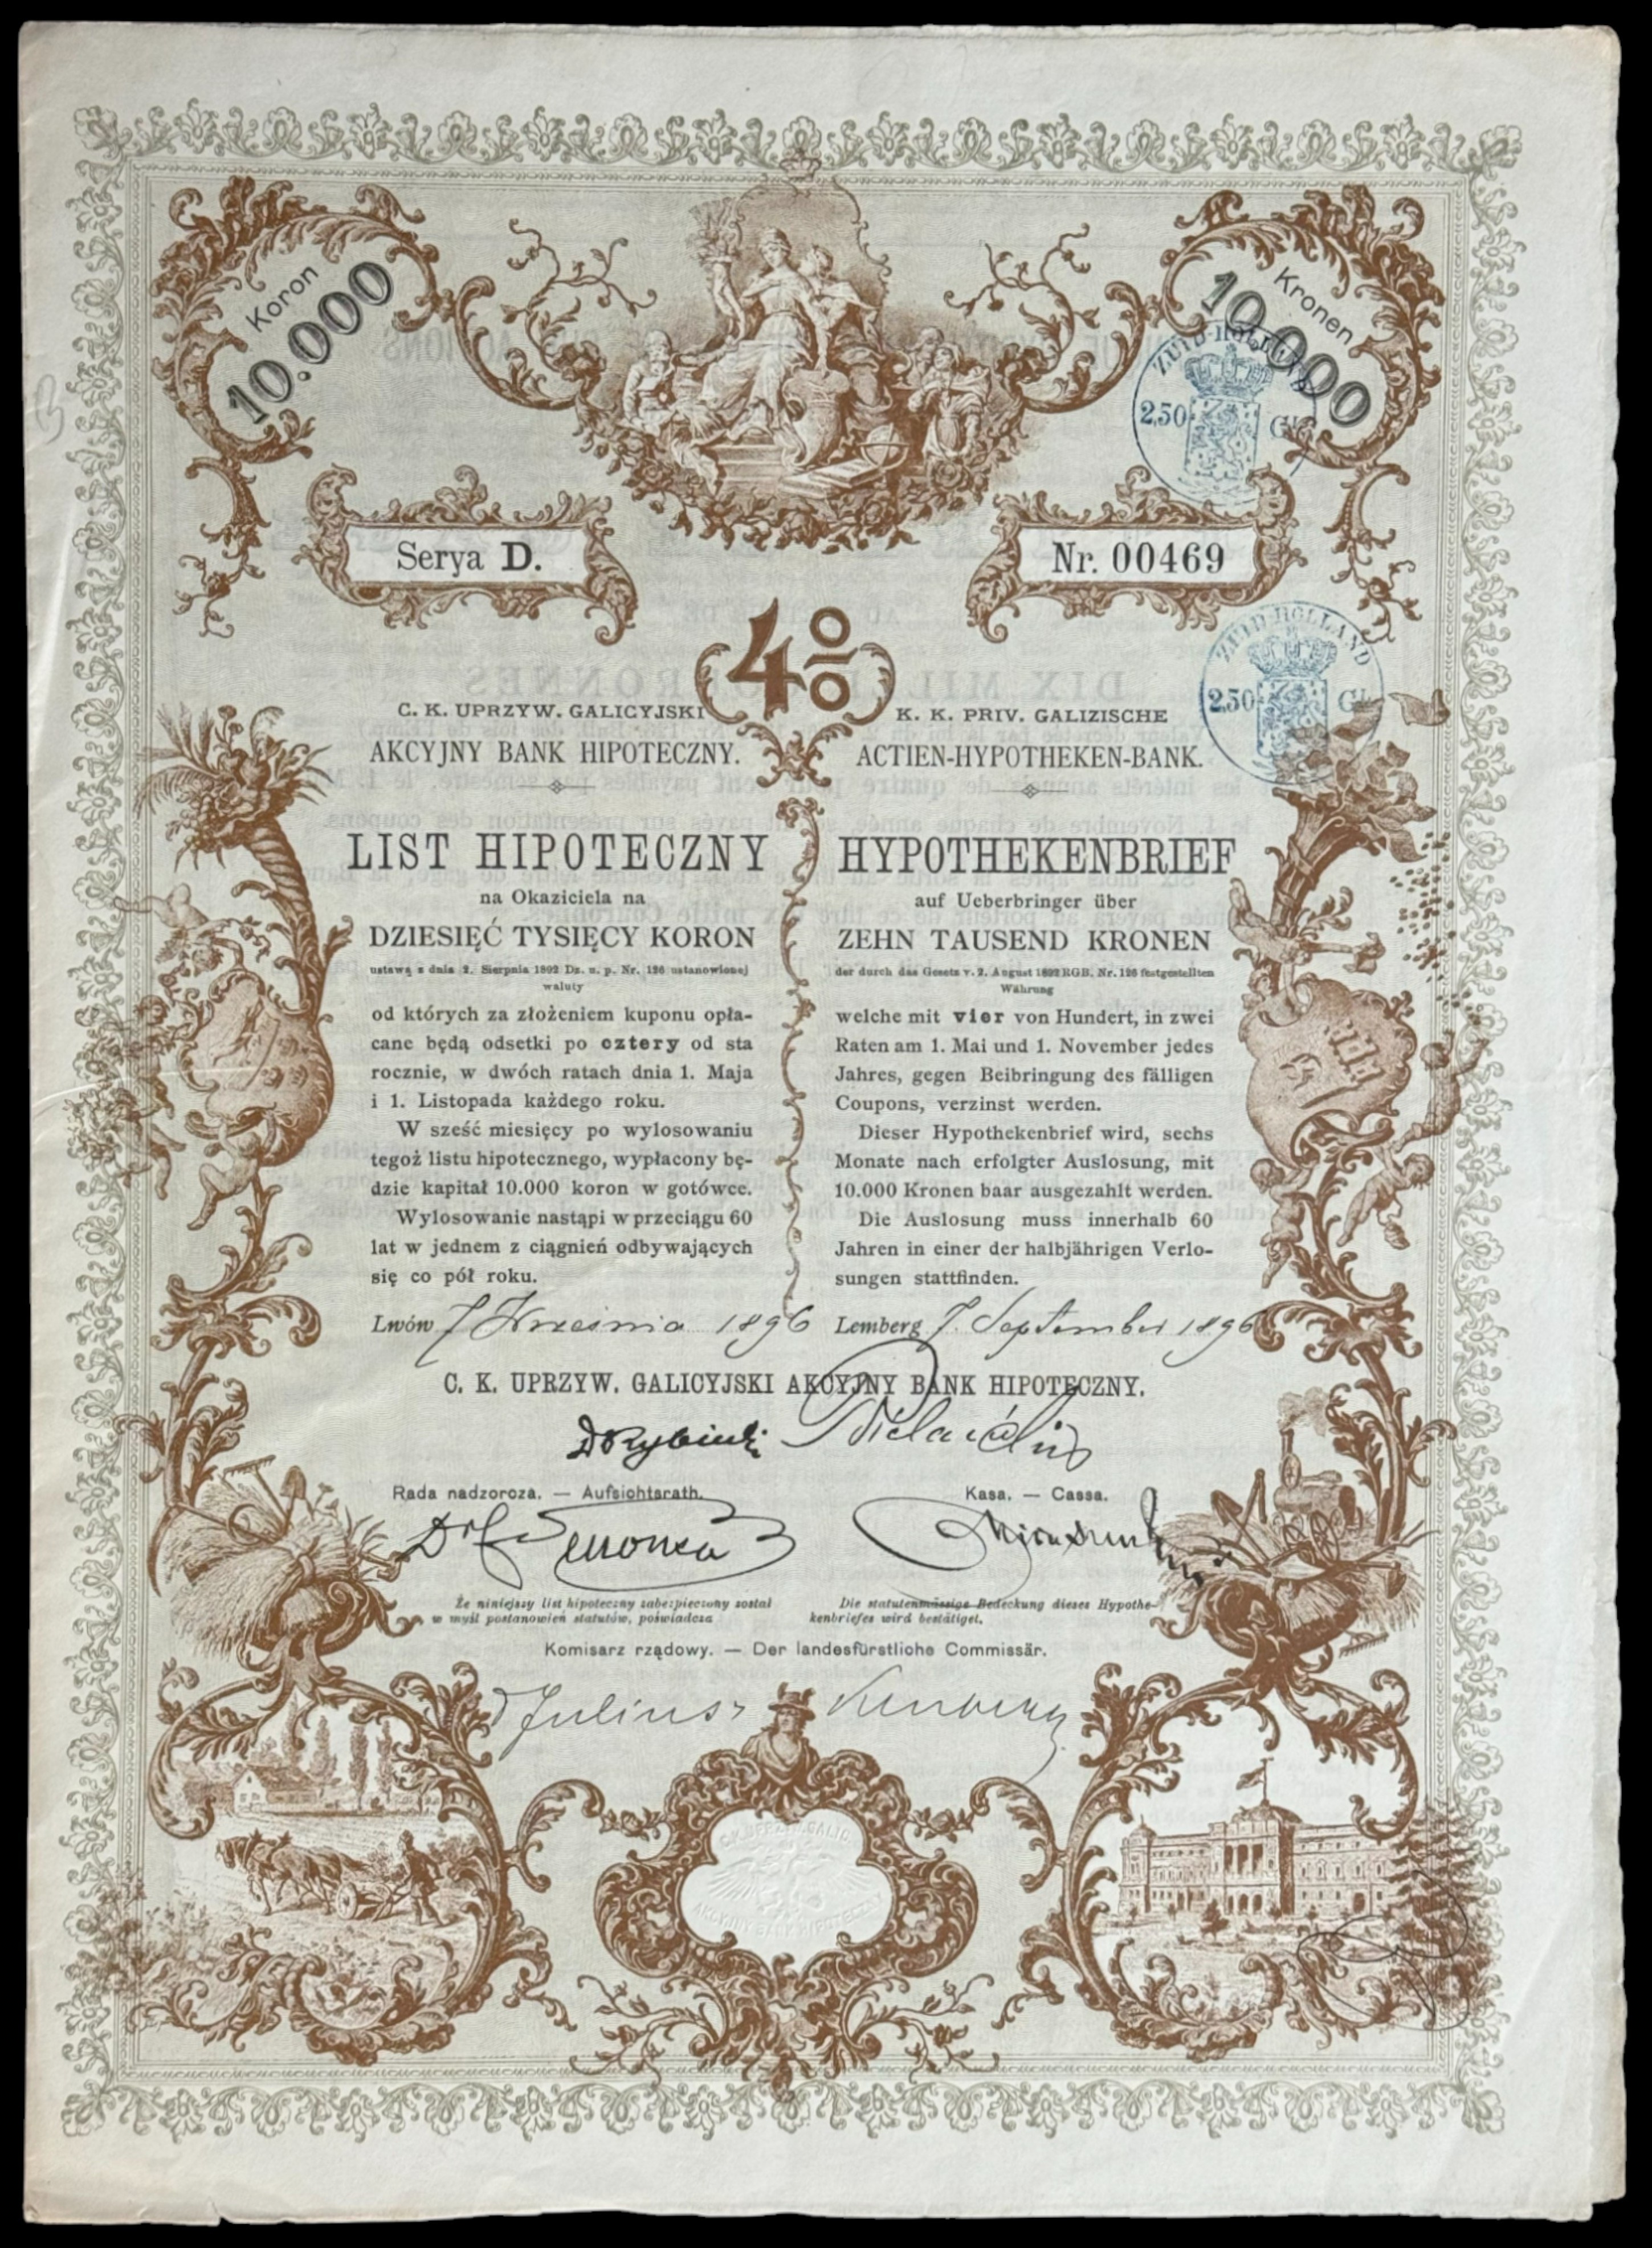 Koron
10.000
Kronen
10.000
ZUID-HOLLAND
2,50 Gl.
Serya D.
Nr. 00469
4%
ZUID-HOLLAND
2,50 Gl.
C. K. UPRZYW. GALICYJSKI
AKCYJNY BANK HIPOTECZNY.
LIST HIPOTECZNY
na Okaziciela na
DZIESIĘĆ TYSIĘCY KORON
ustawą z dnia 2. Sierpnia 1892 Dz. u. p. Nr. 126 ustanowionej
waluty
od których za złożeniem kuponu opła-
cane będą odsetki po cztery od sta
rocznie, w dwóch ratach dnia 1. Maja
i 1. Listopada każdego roku.
W sześć miesięcy po wylosowaniu
tegoż listu hipotecznego, wypłacony bę-
dzie kapitał 10.000 koron w gotówce.
Wylosowanie nastąpi w przeciągu 60
lat w jednem z ciągnień odbywających
się co pół roku.
Lwów 7 Września 1896
K. K. PRIV. GALIZISCHE
ACTIEN-HYPOTHEKEN-BANK.
HYPOTHEKENBRIEF
auf Ueberbringer über
ZEHN TAUSEND KRONEN
der durch das Gesetz v. 2. August 1892 RGB. Nr. 126 festgestellten
Währung
welche mit vier von Hundert, in zwei
Raten am 1. Mai und 1. November jedes
Jahres, gegen Beibringung des fälligen
Coupons, verzinst werden.
Dieser Hypothekenbrief wird, sechs
Monate nach erfolgter Auslosung, mit
10.000 Kronen baar ausgezahlt werden.
Die Auslosung muss innerhalb 60
Jahren in einer der halbjährigen Verlo-
sungen stattfinden.
Lemberg 7. September 1896
C. K. UPRZYW. GALICYJSKI AKCYJNY BANK HIPOTECZNY.
Rada nadzorcza. — Aufsichtsrath.
Kasa. — Cassa.
Że niniejszy list hipoteczny zabezpieczony został
w myśl postanowień statutów, poświadcza
Die statutenmässige Bedeckung dieses Hypothe-
kenbriefes wird bestätiget.
Komisarz rządowy. — Der landesfürstliche Commissär.
C.K. UPRZYW. GALIC.
AKCYJNY BANK HIPOTECZNY